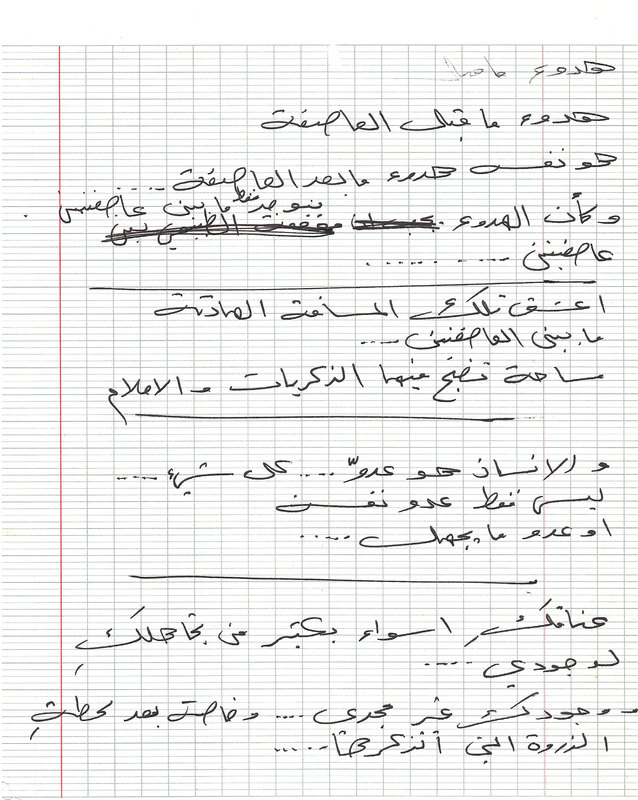 هدوء ما قبل
هدوء ما قبل العاصفة
هو نفسه هدوء ما بعد العاصفة .....
وكأن الهدوء يتوجد فقط ما بين عاصفتين
عاصفتين .... .....
اعشق تلك المسافة الصادقة
ما بين العاصفتين ....
مساحة تنضج فيها الذكريات والاحلام
والانسان هو عدوّ .... كل شيء ....
ليس فقط عدو نفسه
او عدو ما يجهل .....
عناقكِ اسواء بكتير من تجاهلكِ
لوجودي ....
ووجودكِ غير مجدي .... وخاصة بعد لحظةِ
الذروة التي أتذكرها .....